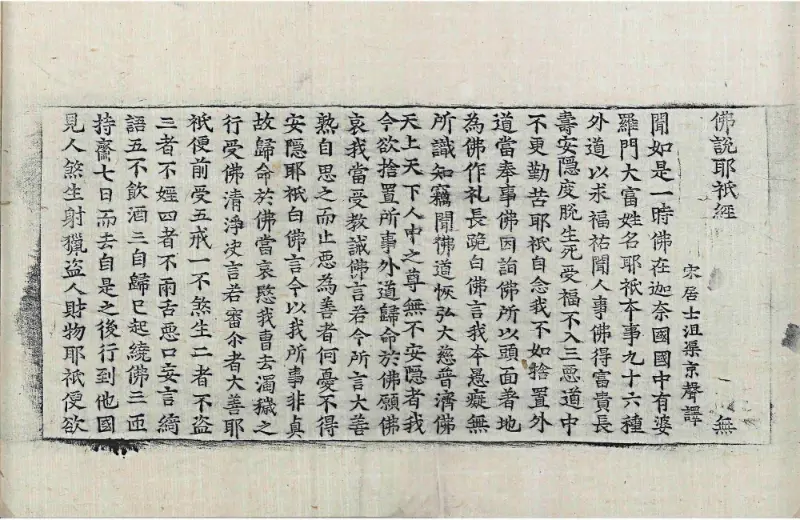 佛說耶祇經　無
宋居士沮渠京聲譯
聞如是一時佛在迦奈國國中有婆
羅門大富姓名耶祇本事九十六種
外道以求福祐聞人事佛得富貴長
壽安隱度脫生死受福不入三惡道中
不更勤苦耶祇自念我不如捨置外
道當奉事佛因詣佛所以頭面著地
為佛作礼長跪白佛言我本愚癡無
所識知竊聞佛道恢弘大慈普濟佛
天上天下人中之尊無不安隱者我
今欲捨置所事外道歸命於佛願佛
哀我當受教誡佛言若今所言大善
熟自思之而止惡為善者何憂不得
安隱耶祇白佛言今以我所事非真
故歸命於佛當哀愍我曹去濁穢之
行受佛清淨決言若審尒者大善耶
祇便前受五戒一不煞生二者不盜
三者不婬四者不兩舌惡口妄言綺
語五不飲酒三自歸已起繞佛三匝
持齋七日而去自是之後行到他國
見人煞生射獵盜人財物耶祇便欲